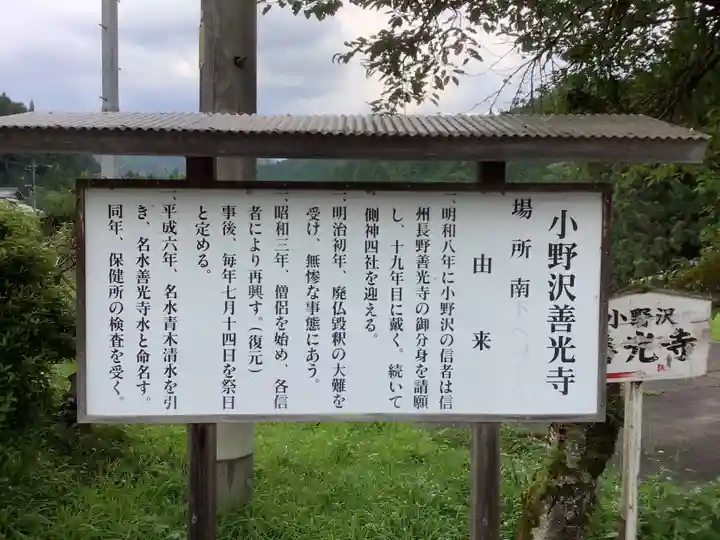 小野沢善光寺
場所南
由来
一、明和八年に小野沢の信者は信
州長野善光寺の御分身を請願
し、十九年目に戴く。続いて
側神四社を迎える。
一、明治初年、廃仏毀釈の大難を
受け、無惨な事態にあう。
一、昭和三年、僧侶を始め、各信
者により再興す。(復元)
事後、毎年七月十四日を祭日
と定める。
一、平成六年、名水青木清水を引
き、名水善光寺水と命名す。
同年、保健所の検査を受く。
小野沢
善光寺